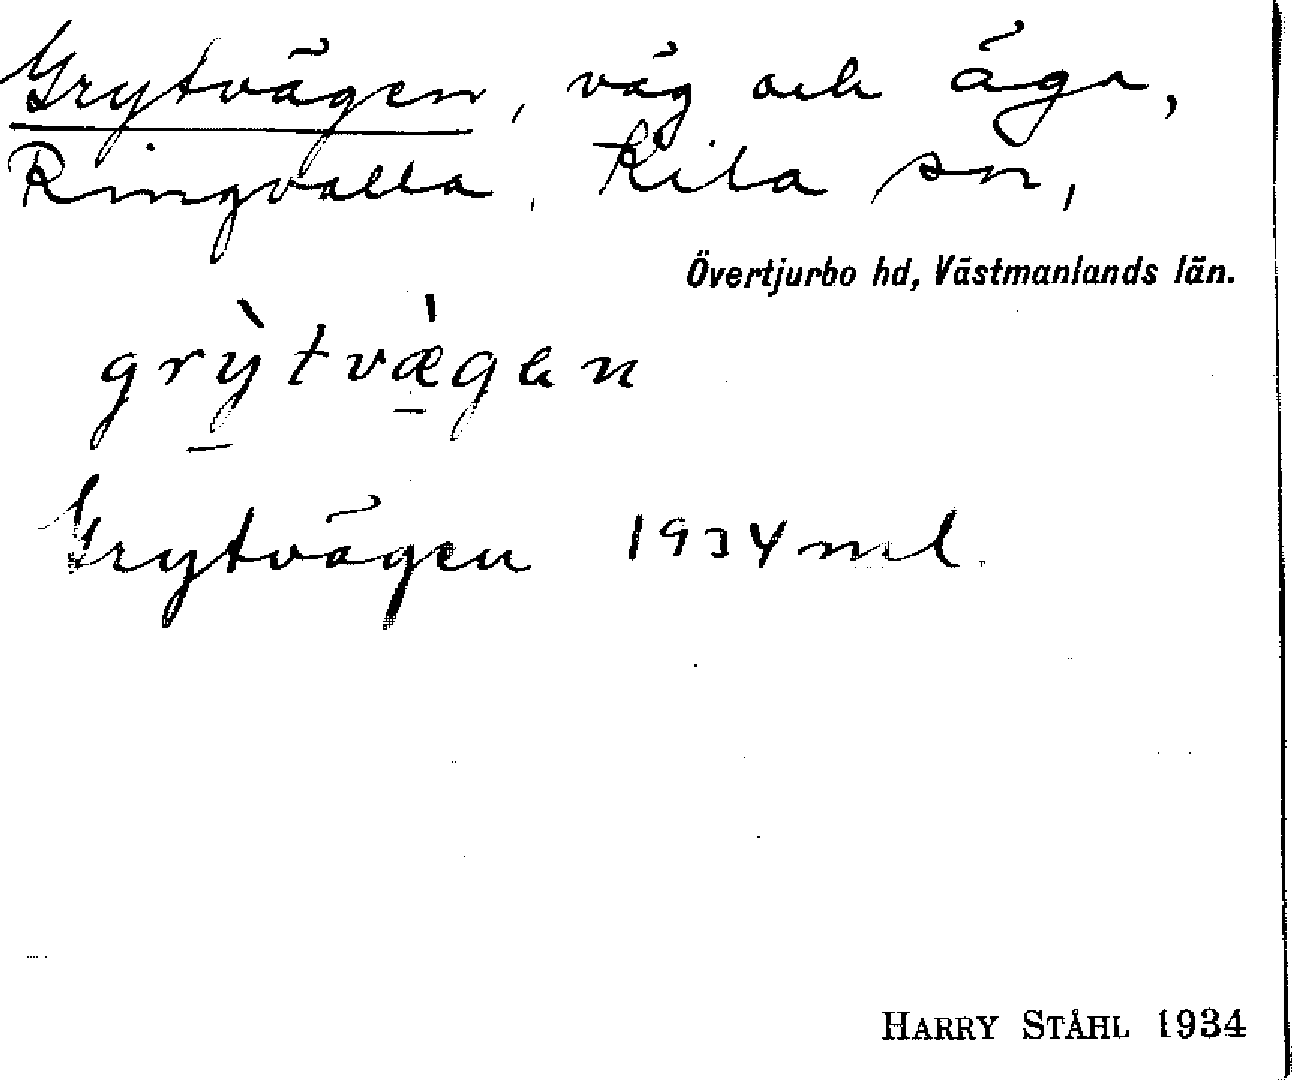 Grytvägen, väg och äga,
Ringvalla, Kila sn,
Övertjurbo hd, Västmanlands län.
grỳtvæ̀gen
Grytvägen 1934 ml
HARRY STÅHL 1934